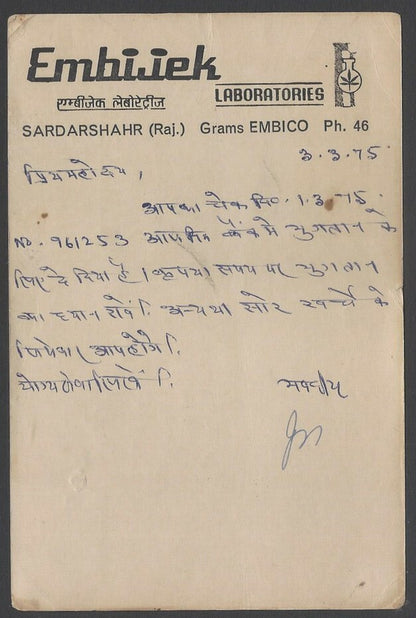 Embijek
एम्बीजेक लेबोरेट्रीज
LABORATORIES
SARDARSHAHR (Raj.) Grams EMBICO Ph. 46
3.3.75
प्रियमहोदय,
आपका चेक दि. 1.3.75
No. 961253 बैंक में भुगतान के
लिए दे दिया है। कृपया समय पर भुगतान
का ध्यान रखें। अन्यथा खर्चे के
आप होंगे।
योग्य सेवा लिखें।
भवदीय